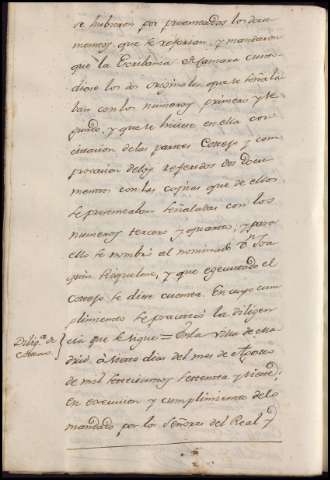 se hubieron por presentados los docu-
mentos que se referian, y mandaron
que la Escribania de Camara custo-
diase los dos originales que se señala-
ban con los numeros primero y se-
gundo, y que se hiciese en ella con
citacion de las partes Cotejo y com-
provacion de los referidos dos docu-
mentos con las copias que de ellos
se presentaban señaladas con los
numeros tercero y quarto, y para
ello se nombró al nominado Dn. Joa-
quin, y que egecutado el
cotejo se diese cuenta. En cuyo cum-
plimiento se practicó la diligen-
Dilig.a de cotejo. } cia que se sigue = En la Villa de Ma-
drid, à siete dias del mes de Agosto
de mil setecientos setenta y siete;
en execucion y cumplimiento de lo
mandado por los Señores del Real y